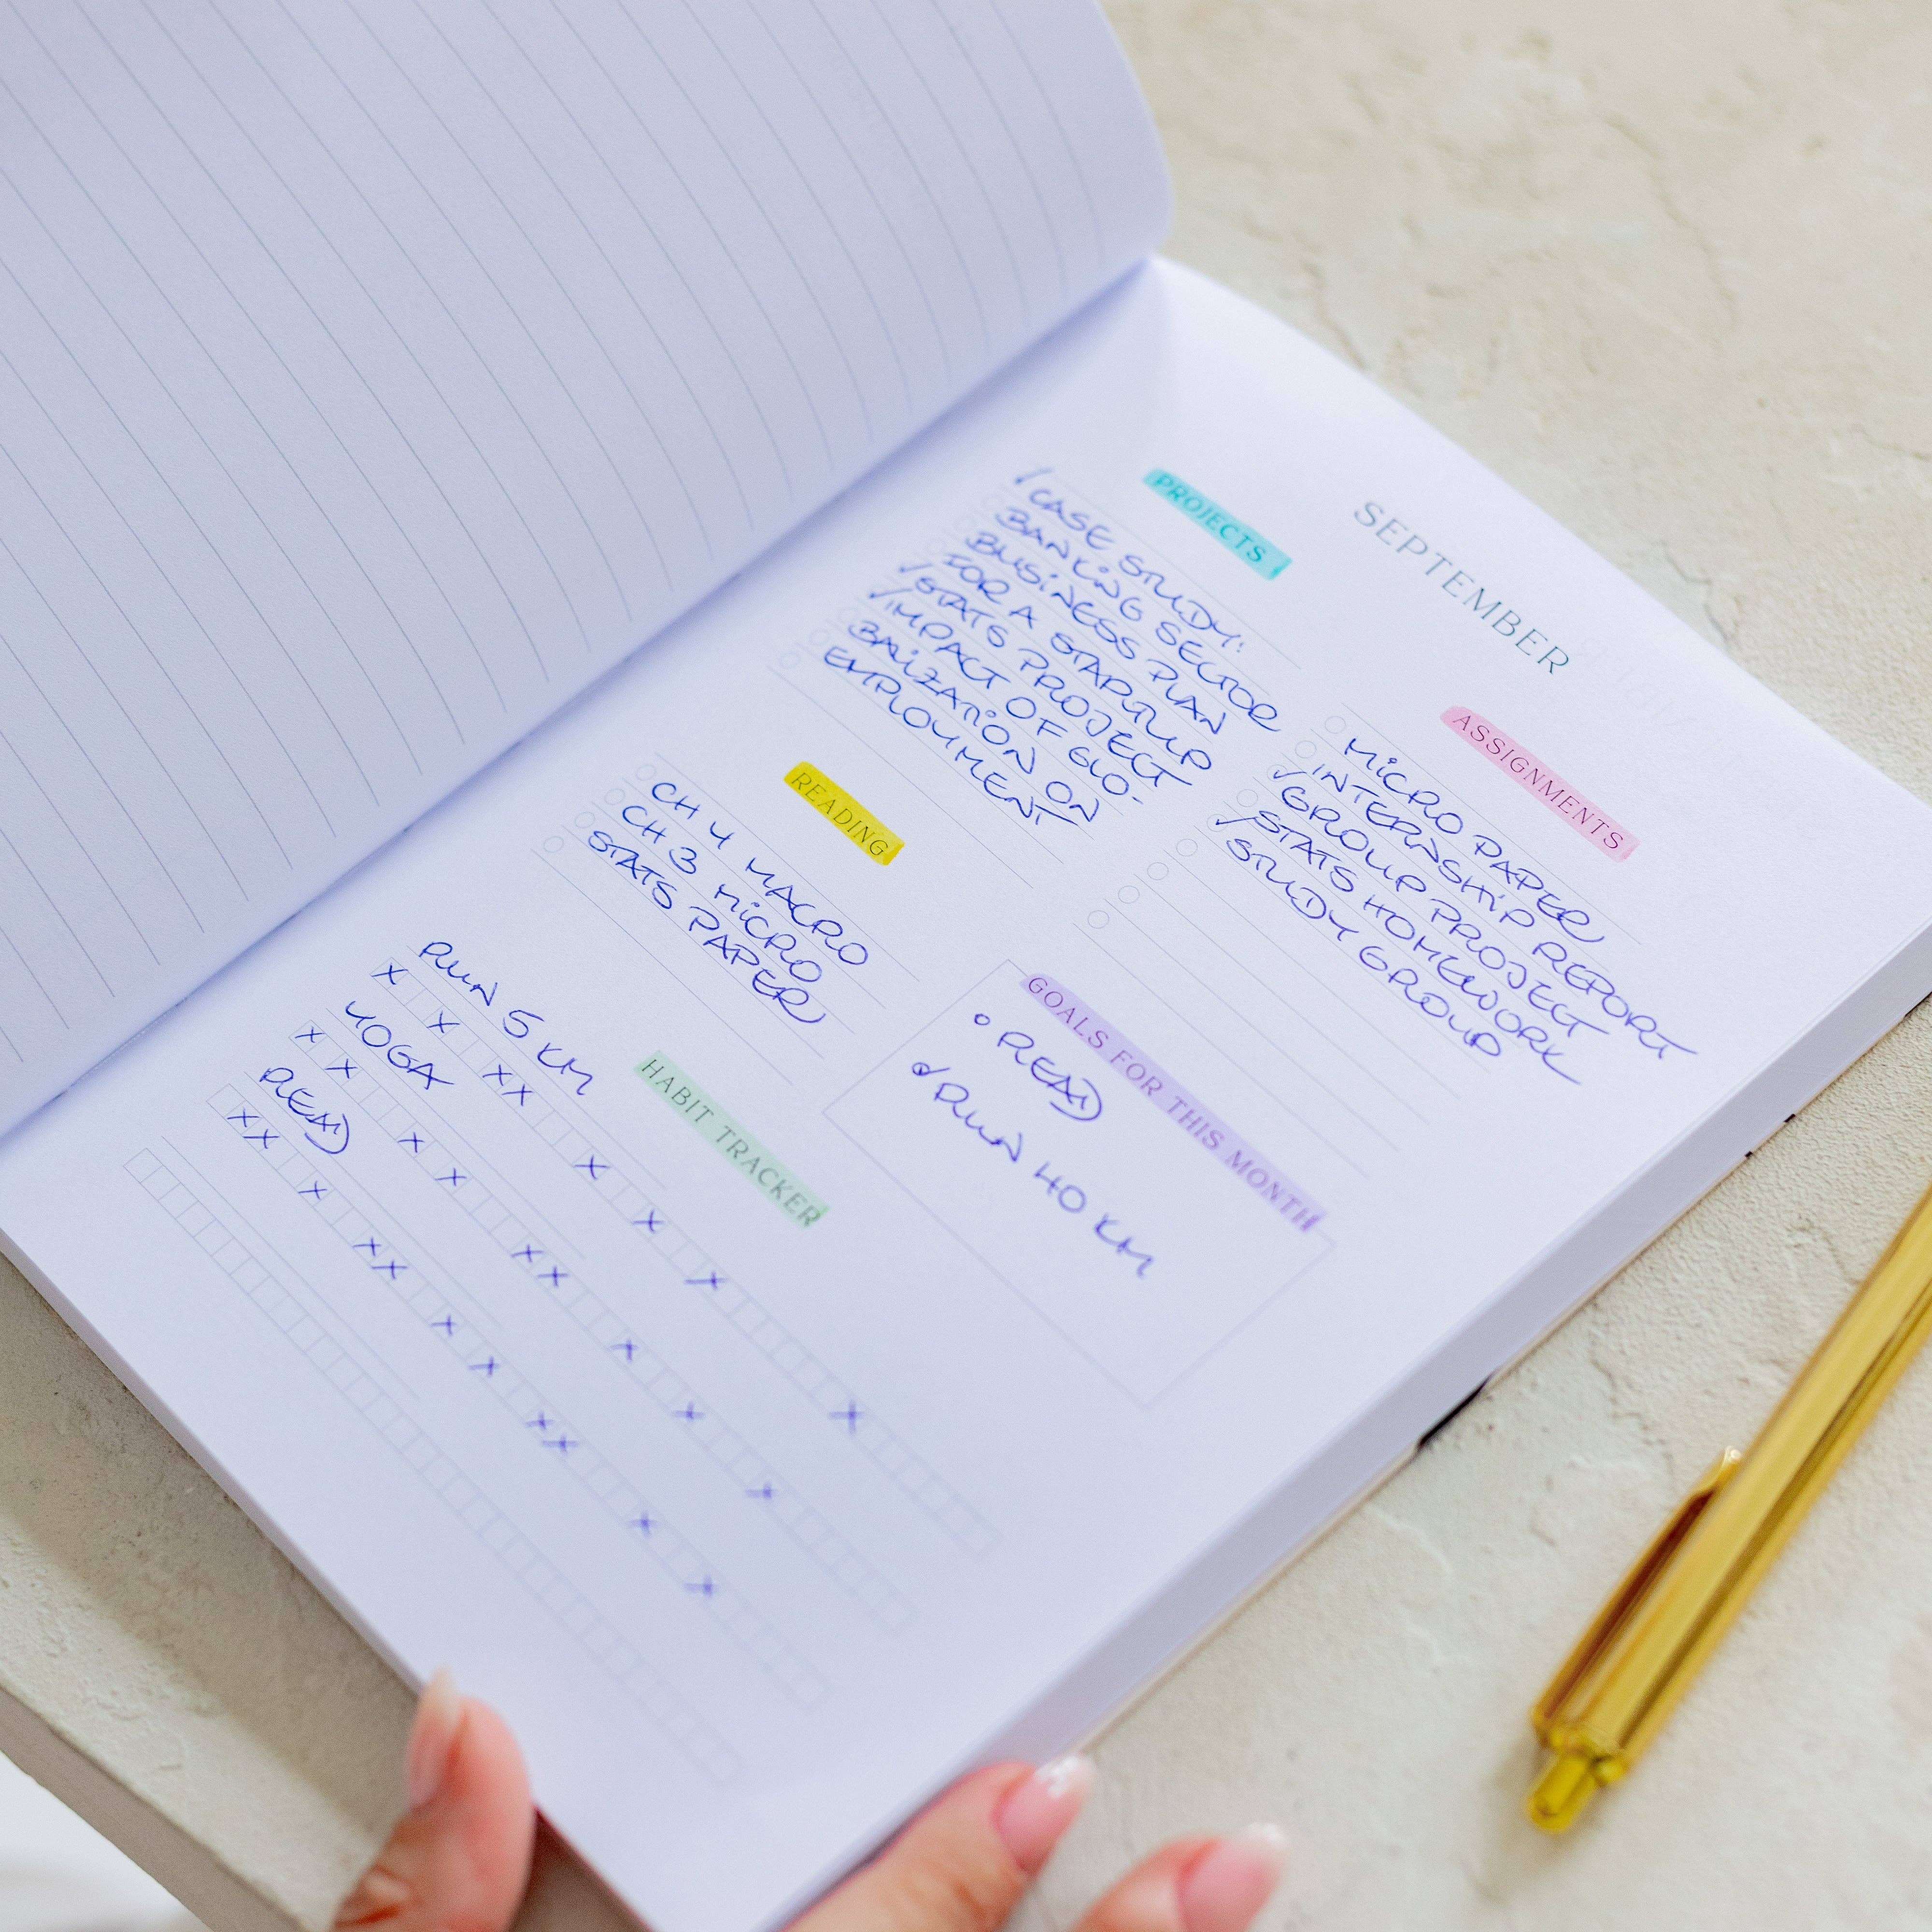 SEPTEMBER
PROJECTS
CASE STUDY:
BANKING SECTOR
BUSINESS PLAN
FOR A STARTUP
STATS PROJECT
IMPACT OF GLO-
BALIZATION ON
EMPLOYMENT
ASSIGNMENTS
MICRO PAPER
INTERNSHIP REPORT
GROUP PROJECT
STATS HOMEWORK
STUDY GROUP
READING
CH 4 MACRO
CH 3 MICRO
STATS PAPER
GOALS FOR THIS MONTH
READ
RUN 40 KM
HABIT TRACKER
RUN 5 KM
X X X X X X X X
YOGA
X X X X X X X X X
READ
X X X X X X X X X X X